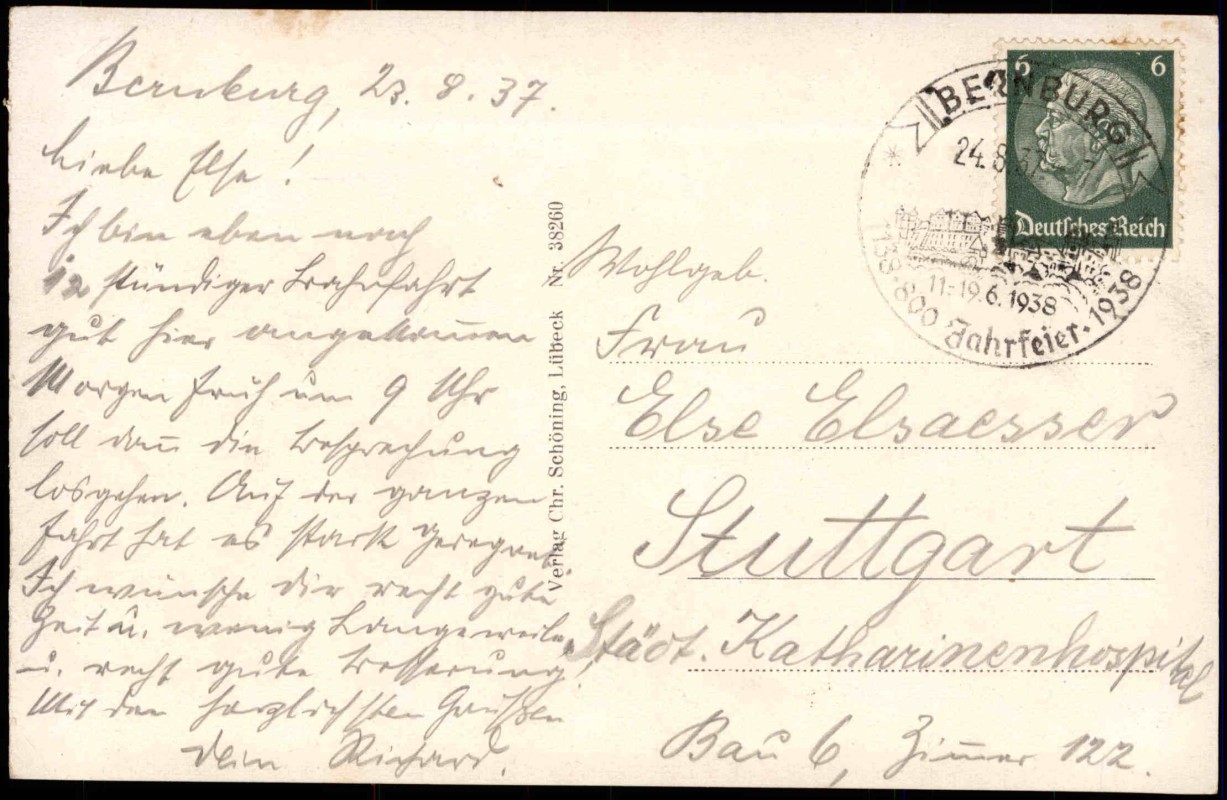 Bernburg, 23. 8. 37.
Liebe Else!
Ich bin eben nach
12 stündiger Bahnfahrt
gut hier angekommen
Morgen früh um 9 Uhr
soll dann die Besprechung
losgehen. Auf der ganzen
Fahrt hat es stark geregnet.
Ich wünsche dir recht gute
Zeit u. wenig Langeweile
u. recht gute Besserung
Mit den herzlichsten Grüßen
Dein Richard.
Verlag Chr. Schöning, Lübeck Nr. 38260
6 6
Deutsches Reich
BERNBURG
24.8.37
11.-19.6.1938
1138·800 Jahrfeier·1938
Wohlgeb.
Frau
Else Elsaesser
Stuttgart
Städt. Katharinenhospital
Bau 6, Zimmer 122.